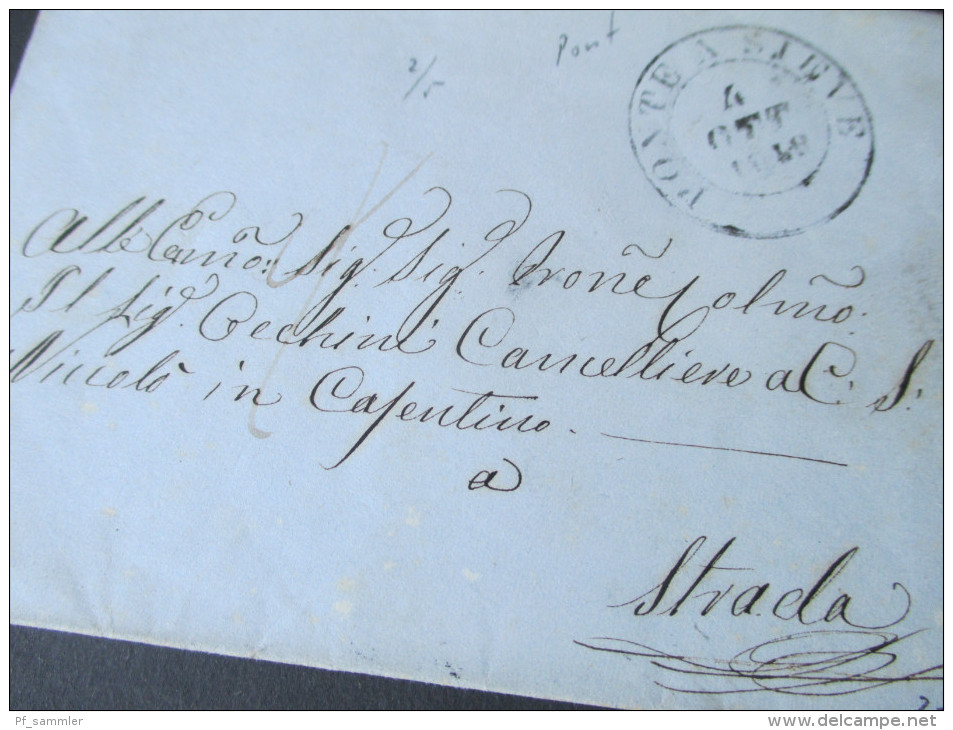 Pont
2/5
PONTE A SIEVE
4
OTT
1849
Alle Sig. Sig.
Il Sig. Cecchini Cancelliere a C. S.
Niccolò in Casentino.
a
Strada
Pf_sammler
www.delcampe.net